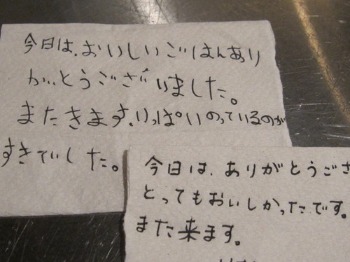 今日は、おいしいごはんあり
がとうございました。
またきます、いっぱいのっているのが
すきでした。
今日は、ありがとうござ
とってもおいしかったです。
また来ます。